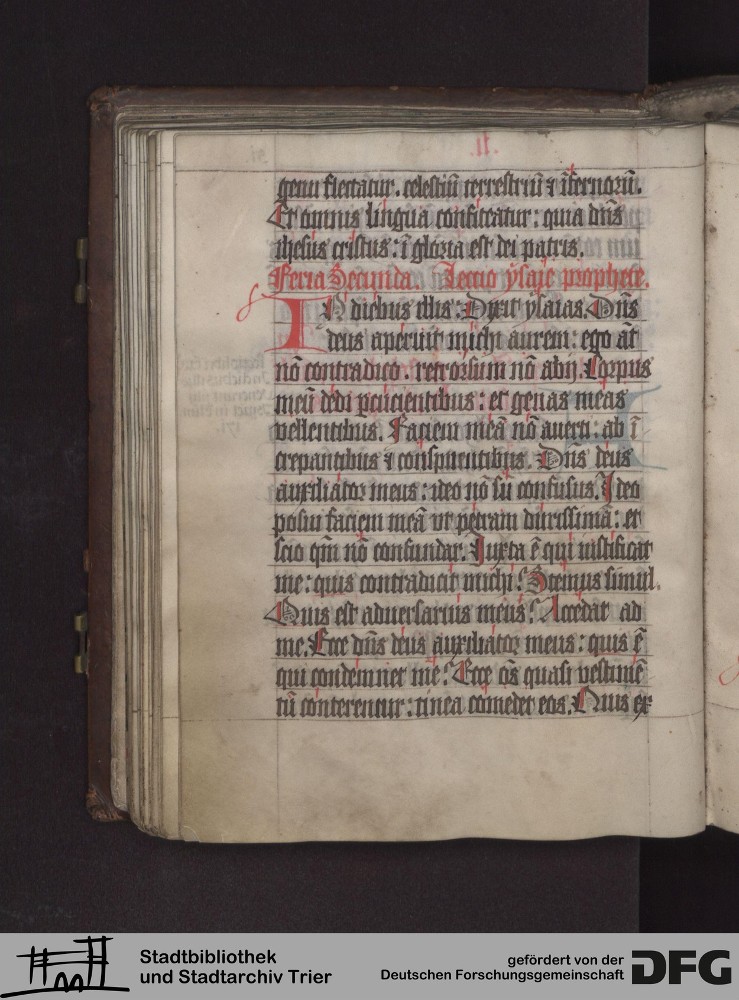 .II.
genu flectatur. celestiũ terrestriũ ⁊ ĩfernorũ.
Et omnis lingua confiteatur: quia dñs
ihesus cristus: ĩ gloria est dei patris.
Feria Secunda. Lectio ysaie prophete.
IN diebus illis: Dixit ysaias. Dñs
deus aperuit michi aurem: ego aũt
nõ contradico. retrorsum nõ abij. Corpus
meũ dedi percucientibus: et genas meas
vellentibus. Faciem meã nõ auerti: ab ĩ
crepantibus ⁊ conspuentibus. Dñs deus
auxiliator meus: ideo nõ sũ confusus. Ideo
posui faciem meã vt petram durissimã: et
scio qm̃ nõ confundar. Iuxta ẽ qui iustificat
me: quis contradicit michi? Stemus simul.
Quis est aduersarius meus? Accedat ad
me. Ecce dñs deus auxiliator meus: quis ẽ
qui condemnet me? Ecce oẽs quasi vestimẽ
tũ conterentur: tinea comedet eos. Quis ex
Stadtbibliothek
und Stadtarchiv Trier
gefördert von der
Deutschen Forschungsgemeinschaft
DFG